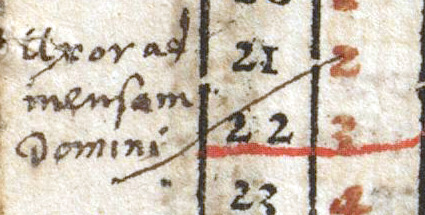 Uxor ad
mensam
Domini
21 2
22 3
23 4